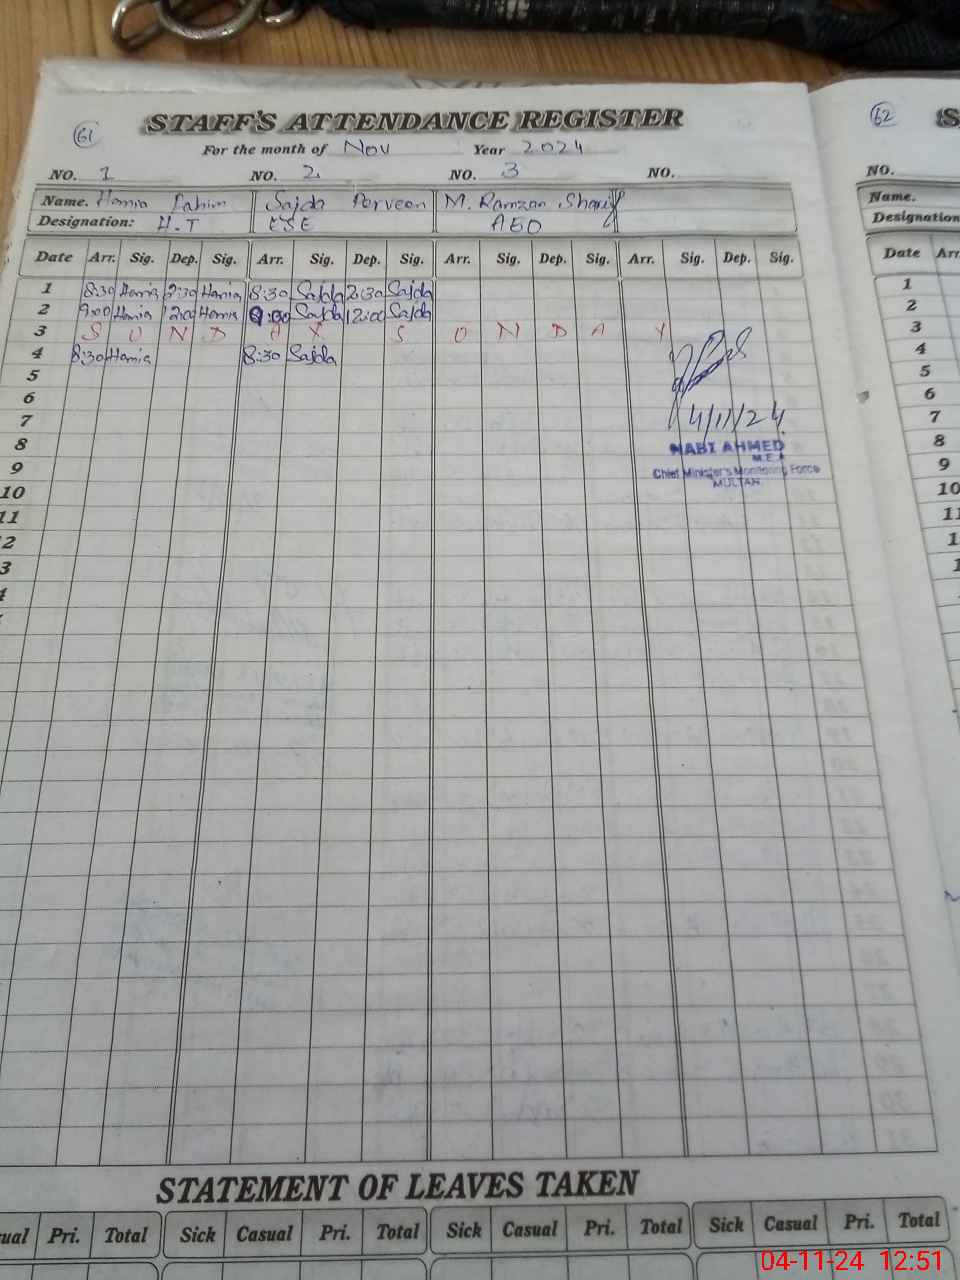 61
STAFF'S ATTENDANCE REGISTER
For the month of Nov Year 2024
NO. 1 NO. 2 NO. 3 NO.
Name. Hamia Fahim Sajda Perveen M. Ramzan Sharif
Designation: H.T ESE AEO
Date Arr. Sig. Dep. Sig. Arr. Sig. Dep. Sig. Arr. Sig. Dep. Sig. Arr. Sig. Dep. Sig.
1 8:30 Hamia 2:30 Hamia 8:30 Sajda 2:30 Sajda
2 9:00 Hamia 12:00 Hamia 9:00 Sajda 12:00 Sajda
3 S U N D A Y S U N D A Y
4 8:30 Hamia 8:30 Sajda
5
6
7 4/11/24
8 NABI AHMED
M.E.A
9 Chief Minister's Monitoring Force
MULTAN.
10
11
2
3
STATEMENT OF LEAVES TAKEN
ual Pri. Total Sick Casual Pri. Total Sick Casual Pri. Total Sick Casual Pri. Total
62
S
NO.
Name.
Designation
Date Arr
1
2
3
4
5
6
7
8
9
10
11
1
1
04-11-24 12:51